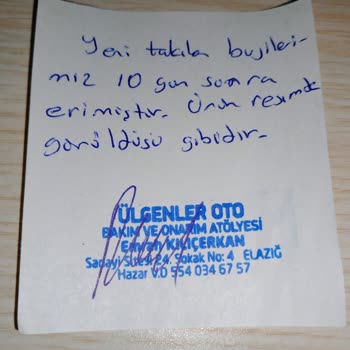 Yeni takılan bujileri-
miz 10 gün sonra
erimiştir. Ürün resimde
görüldüğü gibidir.
ÜLGENLER OTO
BAKIM VE ONARIM ATÖLYESİ
Emrah KILIÇERKAN
Sanayi Sitesi 24. Sokak No: 4 ELAZIĞ
Hazar V.D 554 034 67 57